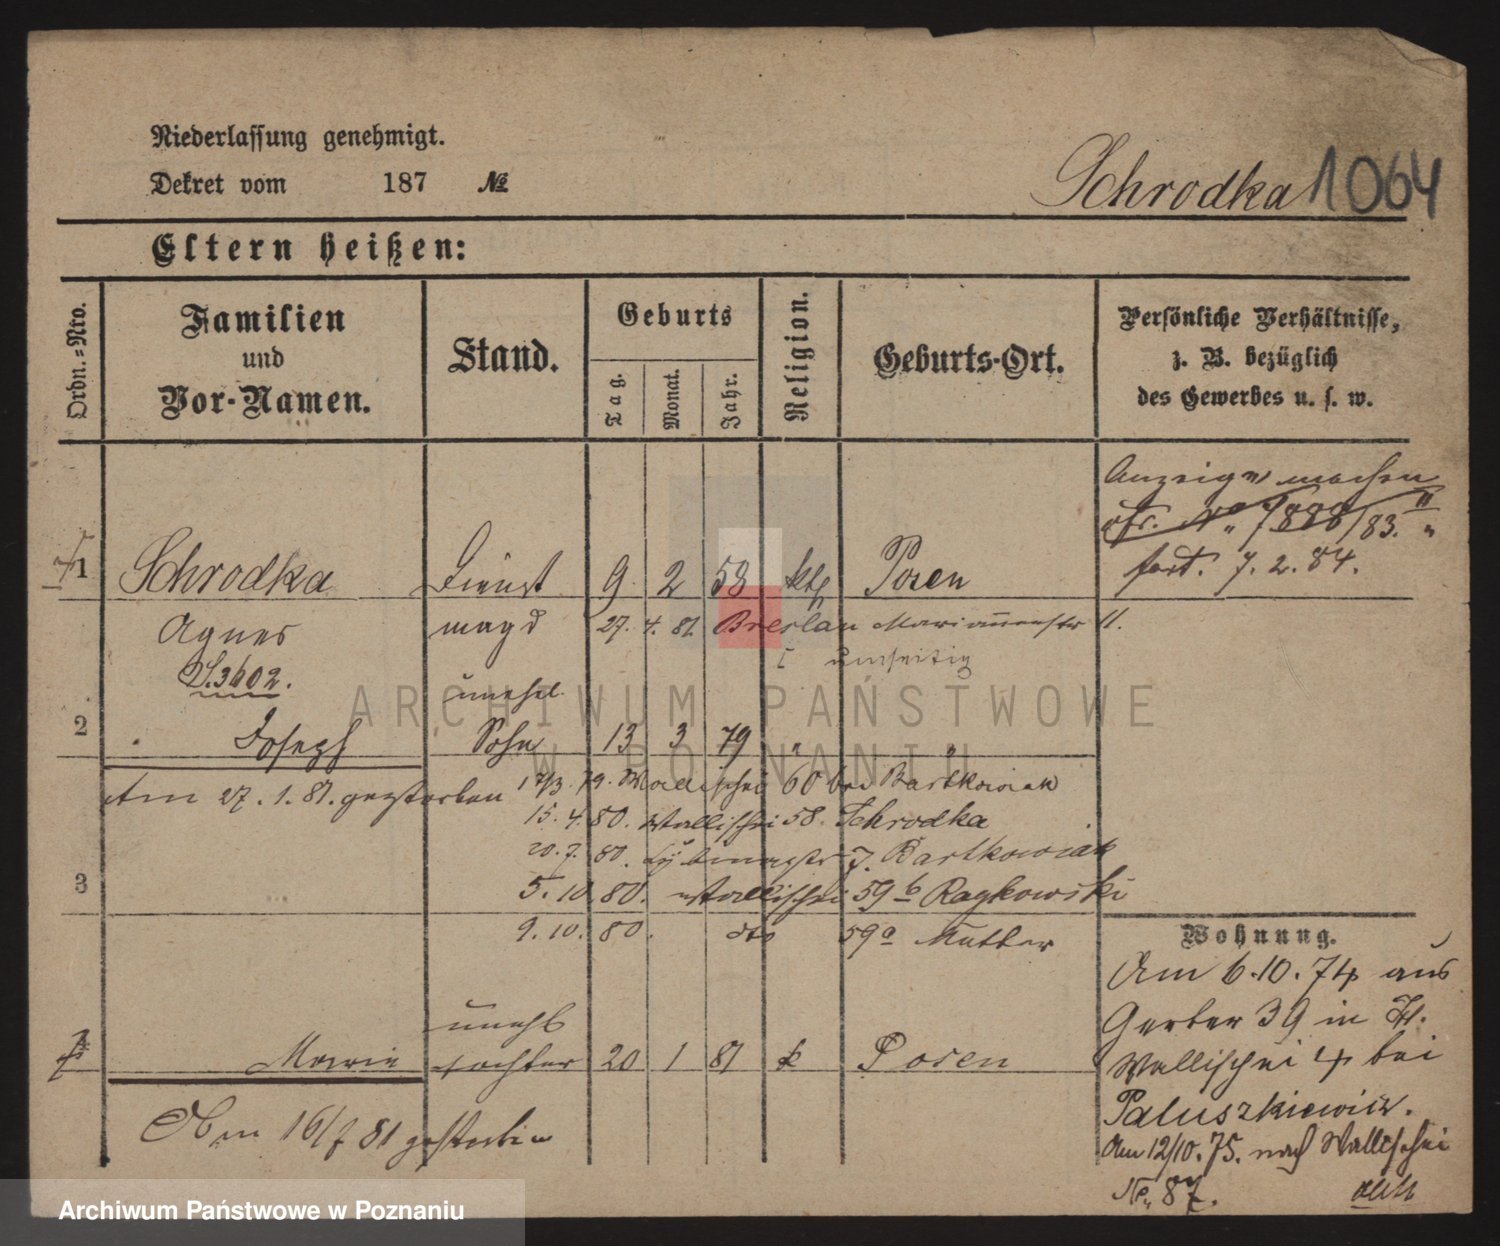 Niederlassung genehmigt.
Dekret vom 187 №
Schrodka 1064
Eltern heißen:
Ordn.=Nro.
Familien
und
Vor-Namen.
Stand.
Geburts
Tag.
Monat.
Jahr.
Religion.
Geburts-Ort.
Persönliche Verhältnisse,
z. B. bezüglich
des Gewerbes u. s. w.
Anzeige machen
/83.
fort. 7. 2. 84.
1 Schrodka Dienst 9. 2 58 kth Posen
Agnes magd 27. 4. 81. Breslau Mariannenstr 11.
umseitig
S. 3602.
unehel.
2 Joseph Sohn 13 3 79 " "
Am 27. 1. 81. gestorben
17/3. 79. Wallischei 60 bei Bartkowiak
15. 4. 80. Wallischei 58. Schrodka
20. 7. 80. 7. Bartkowiak
3
5. 10. 80. Wallischei 59 b Raykowski
9. 10. 80. dto 59a Mutter
unehl
4 Marie tochter 20 1 81 k Posen
Am 16/7 81 gestorben
Wohnung.
Am 6.10.74 aus
Gerber 39 in
Wallischei 4 bei
Paluszkiewicz.
Am 12/10. 75. nach Wallischei
No. 87.
ARCHIWUM PAŃSTWOWE
W POZNANIU
Archiwum Państwowe w Poznaniu